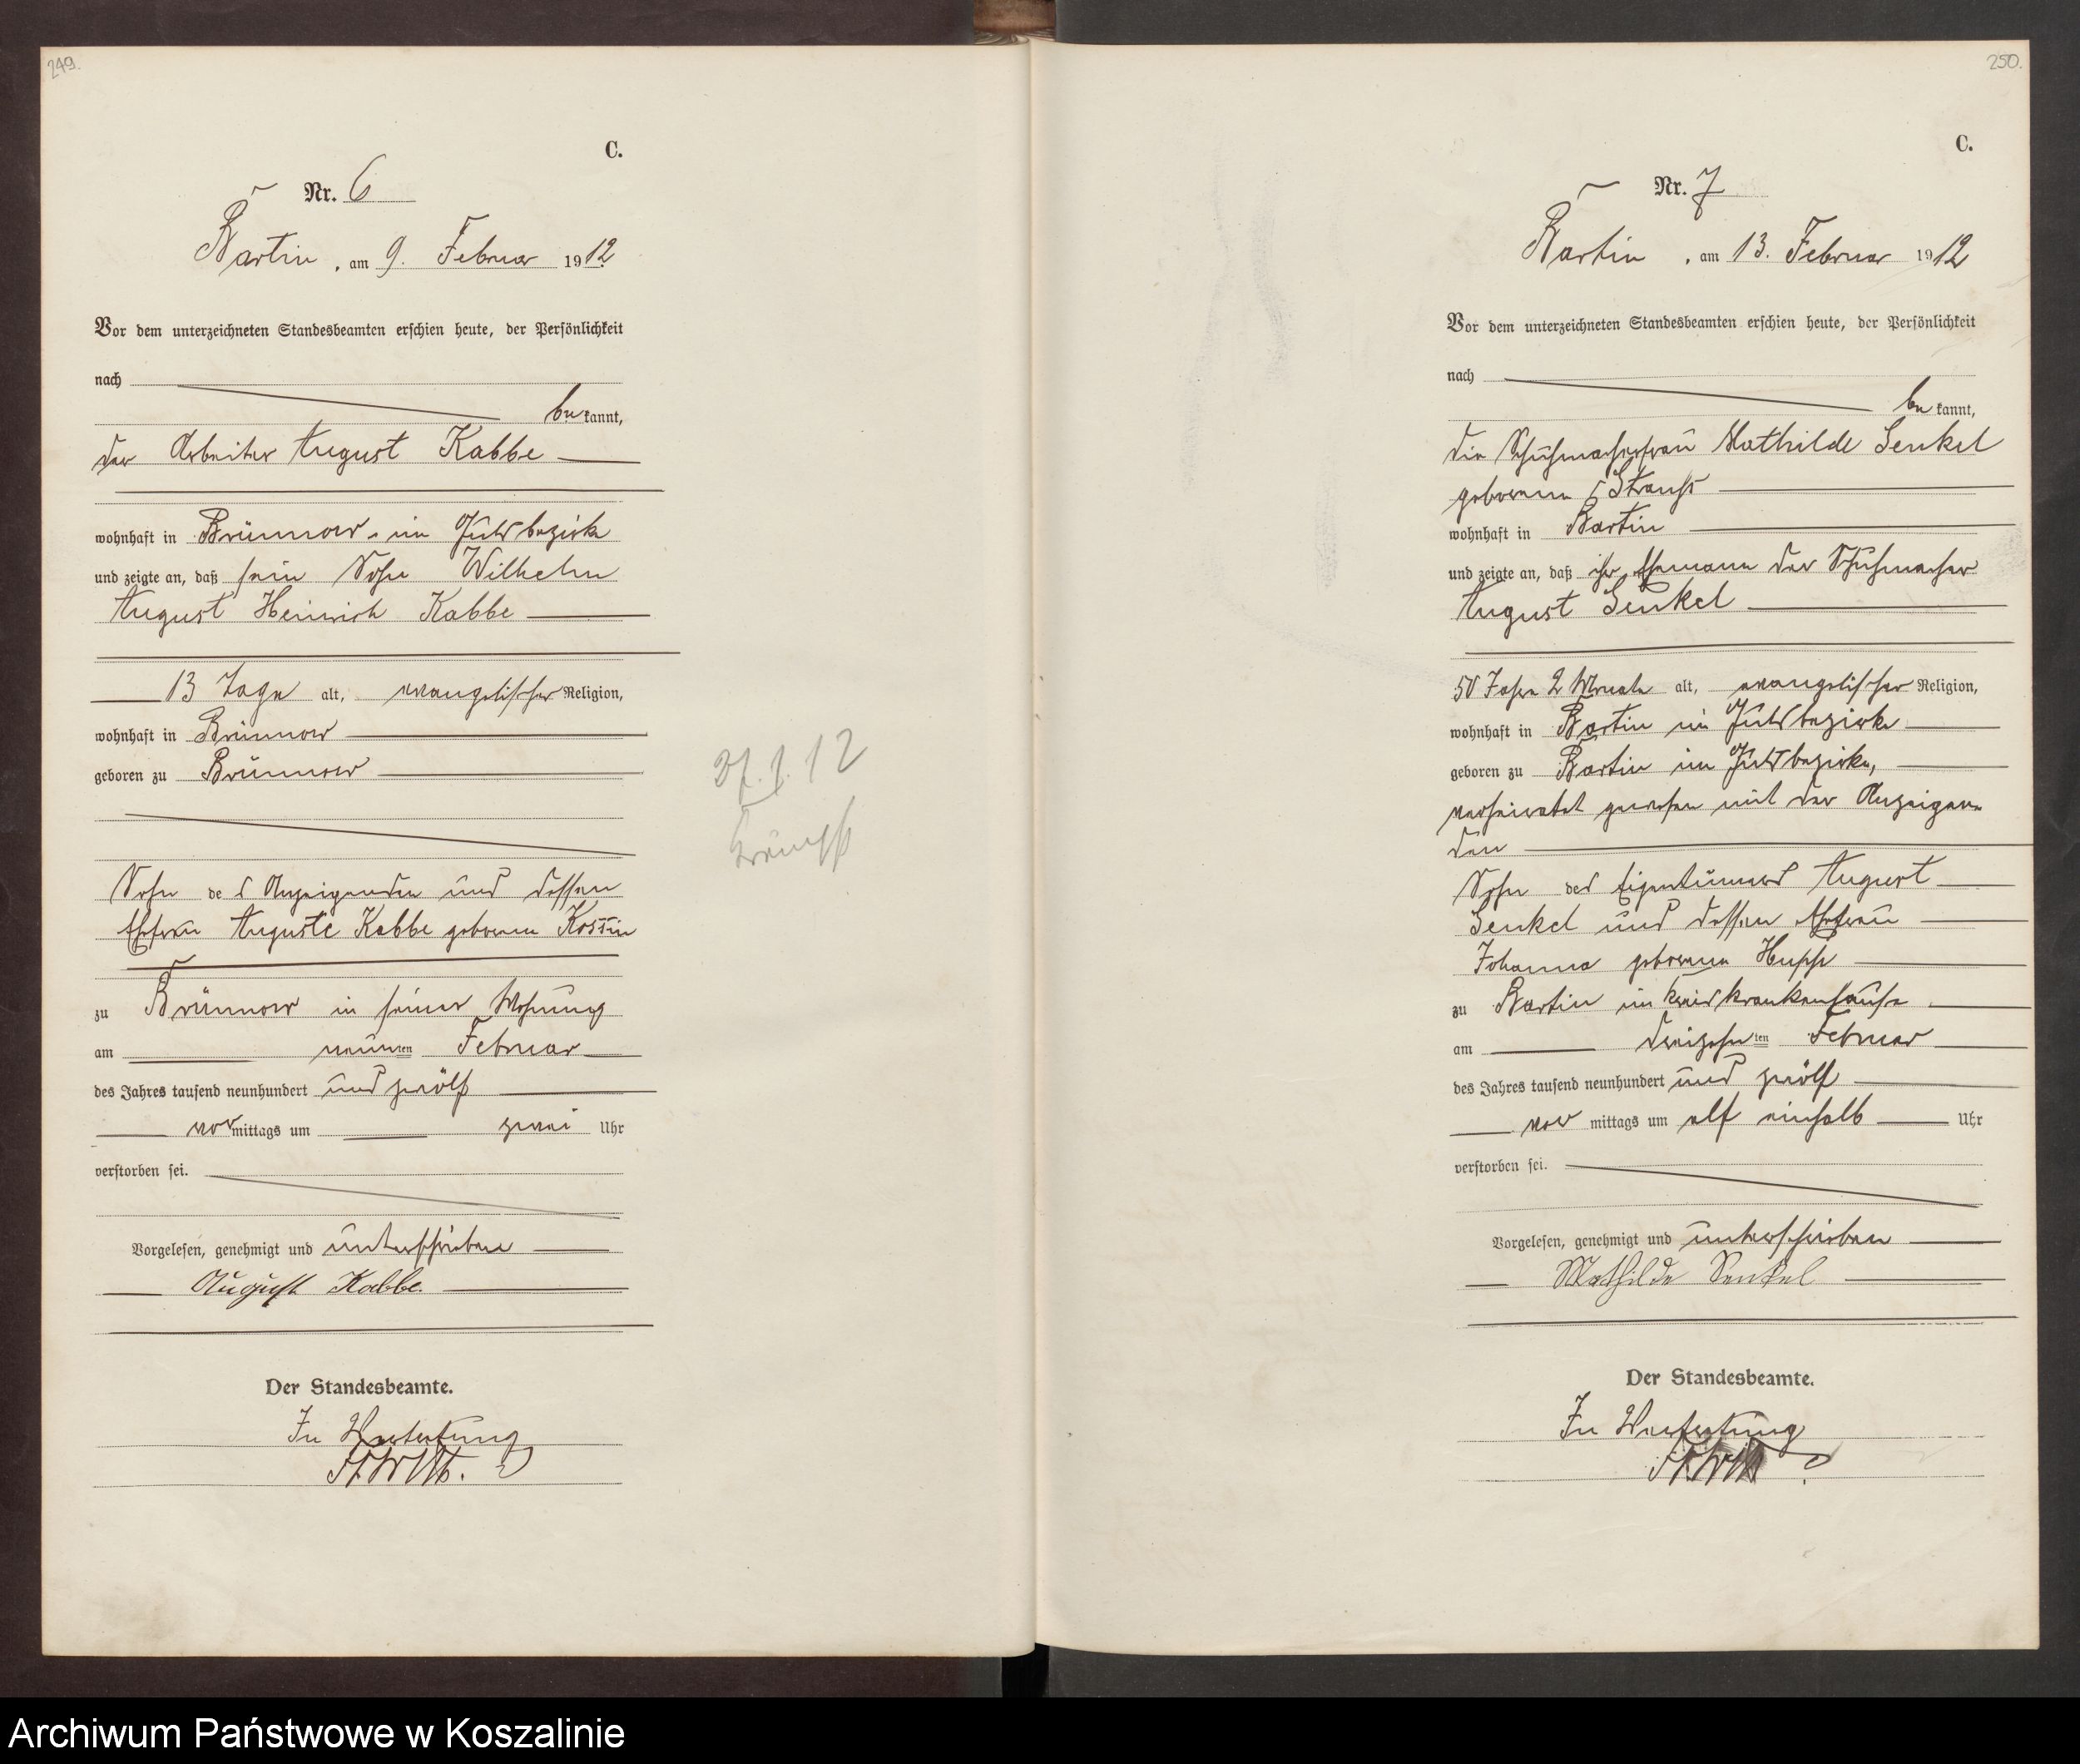 249.
C.
Nr. 6
Bartin, am 9. Februar 1912
Vor dem unterzeichneten Standesbeamten erschien heute, der Persönlichkeit
nach
bekannt,
der Arbeiter August Kabbe
wohnhaft in Brünnow, im Gutsbezirke
und zeigte an, daß sein Sohn Wilhelm
August Heinrich Kabbe
13 Tage alt, evangelischer Religion,
wohnhaft in Brünnow
geboren zu Brünnow
Sohn des Anzeigenden und dessen
Ehefrau Auguste Kabbe geborenen Kossin
zu Brünnow in seiner Wohnung
am neunten Februar
des Jahres tausend neunhundert und zwölf
vormittags um zwei Uhr
verstorben sei.
Vorgelesen, genehmigt und unterschrieben
August Kabbe.
Der Standesbeamte.
In Vertretung
27.1.12
Krämpfe
250.
C.
Nr. 7
Bartin, am 13. Februar 1912
Vor dem unterzeichneten Standesbeamten erschien heute, der Persönlichkeit
nach
bekannt,
die Schuhmacherfrau Mathilde Senkel
geborene Strauß
wohnhaft in Bartin
und zeigte an, daß ihr Ehemann der Schuhmacher
August Senkel
50 Jahre 2 Monate alt, evangelischer Religion,
wohnhaft in Bartin im Gutsbezirke
geboren zu Bartin im Gutsbezirke,
verheiratet gewesen mit der Anzeigen=
den
Sohn des Eigentümers August
Senkel und dessen Ehefrau
Johanna geborenen
zu Bartin im Kreiskrankenhause
am dreizehnten Februar
des Jahres tausend neunhundert und zwölf
vormittags um elf einhalb Uhr
verstorben sei.
Vorgelesen, genehmigt und unterschrieben
Mathilde Senkel
Der Standesbeamte.
In Vertretung
Archiwum Państwowe w Koszalinie